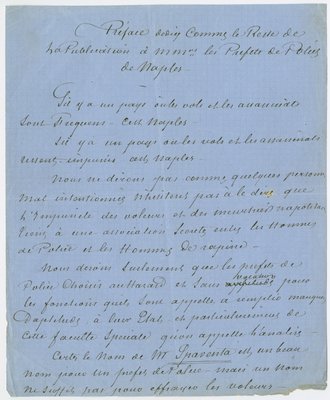 Préface dediy Comme le Reste de
La Publication à Mmrs les Prefets de Police
de Naples
S'il y a un pays ou les vols et les assassinats
Sont Frequens - C'est Naples
S'il y a un pays ou les vols et les assassinats
restent impunis c'est Naples -
Nous ne dirons pas comme quelques personn
Mal intentionnées n'hesitent pas à le dire que
L'Impunité des voleurs et des meurtriers napolitai
tiens à une association Secrete entre les Hommes
de Police et les Hommes de rapine -
Nous dirons Seulement que les prefets de
Police Choisis au Hasard et Sans pour
les fonctions quils Sont appellés à remplir manque
D'aptitude à leur Etat et particulierement de
Cette faculté Speciale qu'on appelle
Certes le Nom de Mr Spaventa est un beau
Nom pour un prefet de Police mais un Nom
Ne Suffit pas pour effrayer les voleurs -